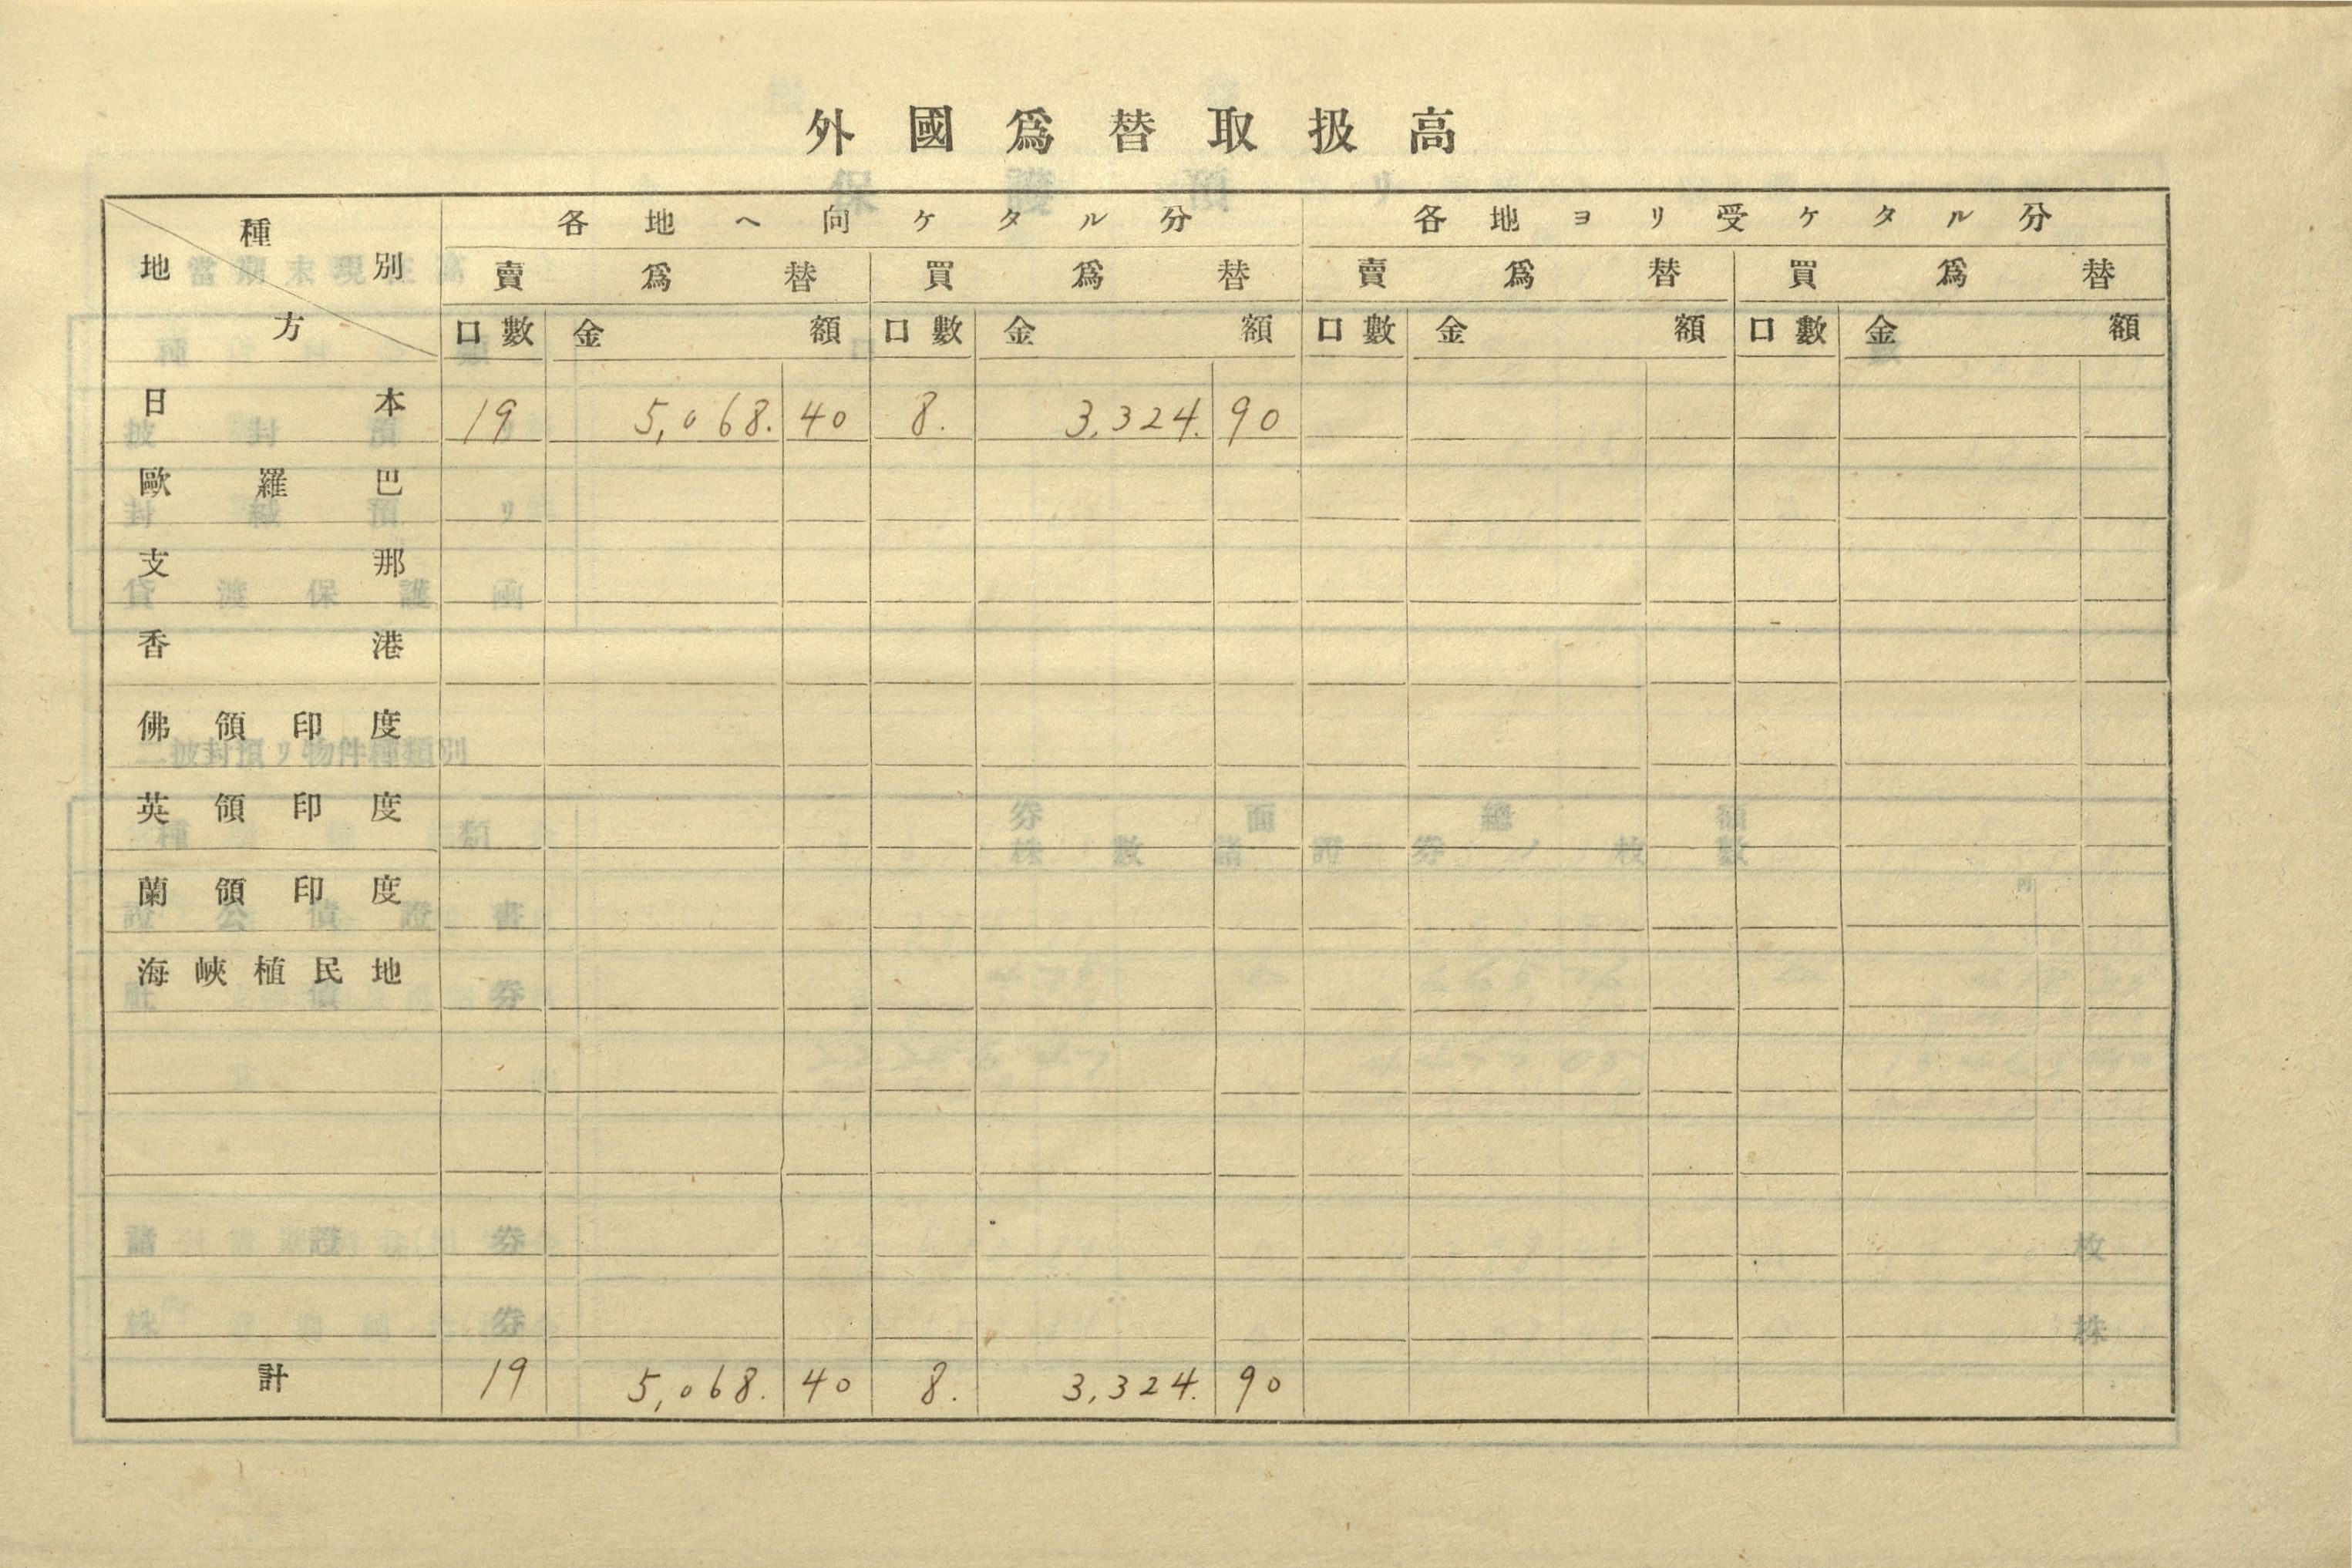 外國爲替取扱高
種別 地方
各地ヘ向ケタル分 各地ヨリ受ケタル分
賣爲替 買爲替 賣爲替 買爲替
口數 金額 口數 金額 口數 金額 口數 金額
日本 19 5,068. 40 8. 3,324. 90
歐羅巴
支那
香港
佛領印度
英領印度
蘭領印度
海峽植民地
計 19 5,068. 40 8. 3,324. 90